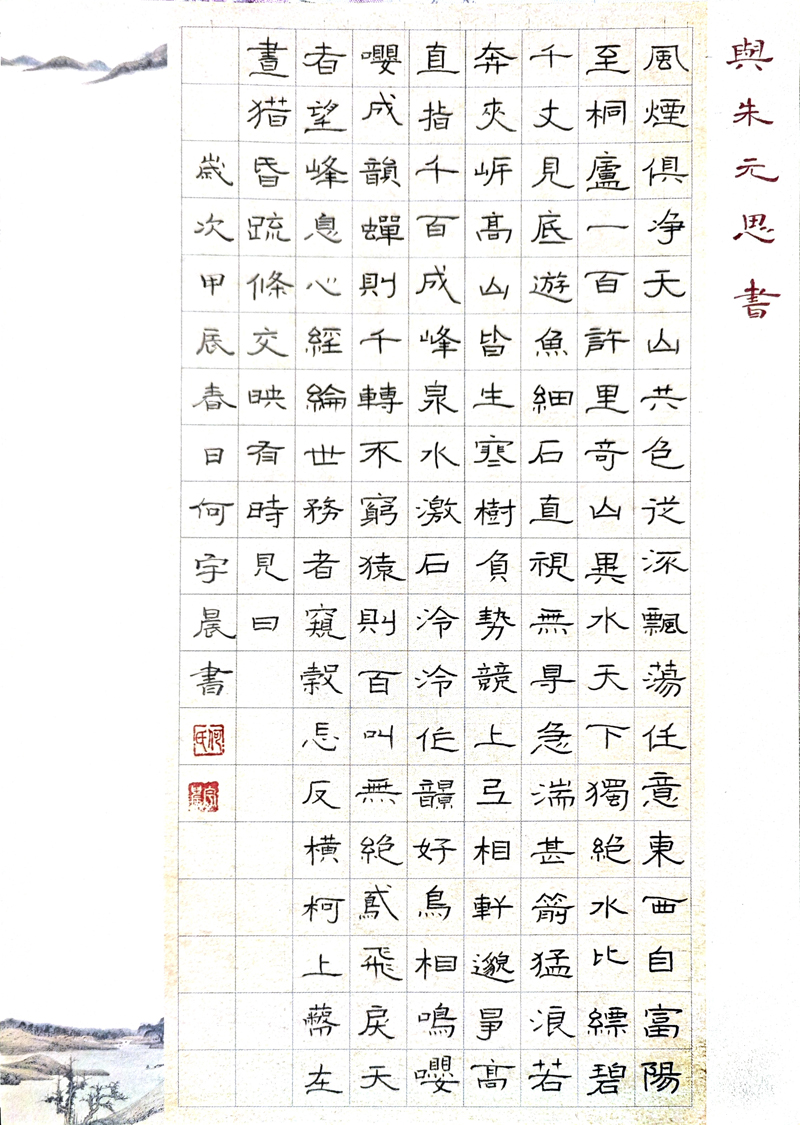 與朱元思書
風煙俱净天山共色從流飄蕩任意東西自富陽
至桐廬一百許里奇山異水天下獨絕水比縹碧
千丈見底遊魚細石直視無早急湍甚箭猛浪若
奔夾岸高山皆生寒樹負勢競上互相軒邈爭高
直指千百成峰泉水激石泠泠作韻好鳥相鳴嚶
嚶成韻蟬則千轉不窮猿則百叫無絕鳶飛戾天
者望峰息心經綸世務者窺穀忘反橫柯上蔽在
晝猶昏疏條交映有時見日
歲次甲辰春日何宇晨書
何氏